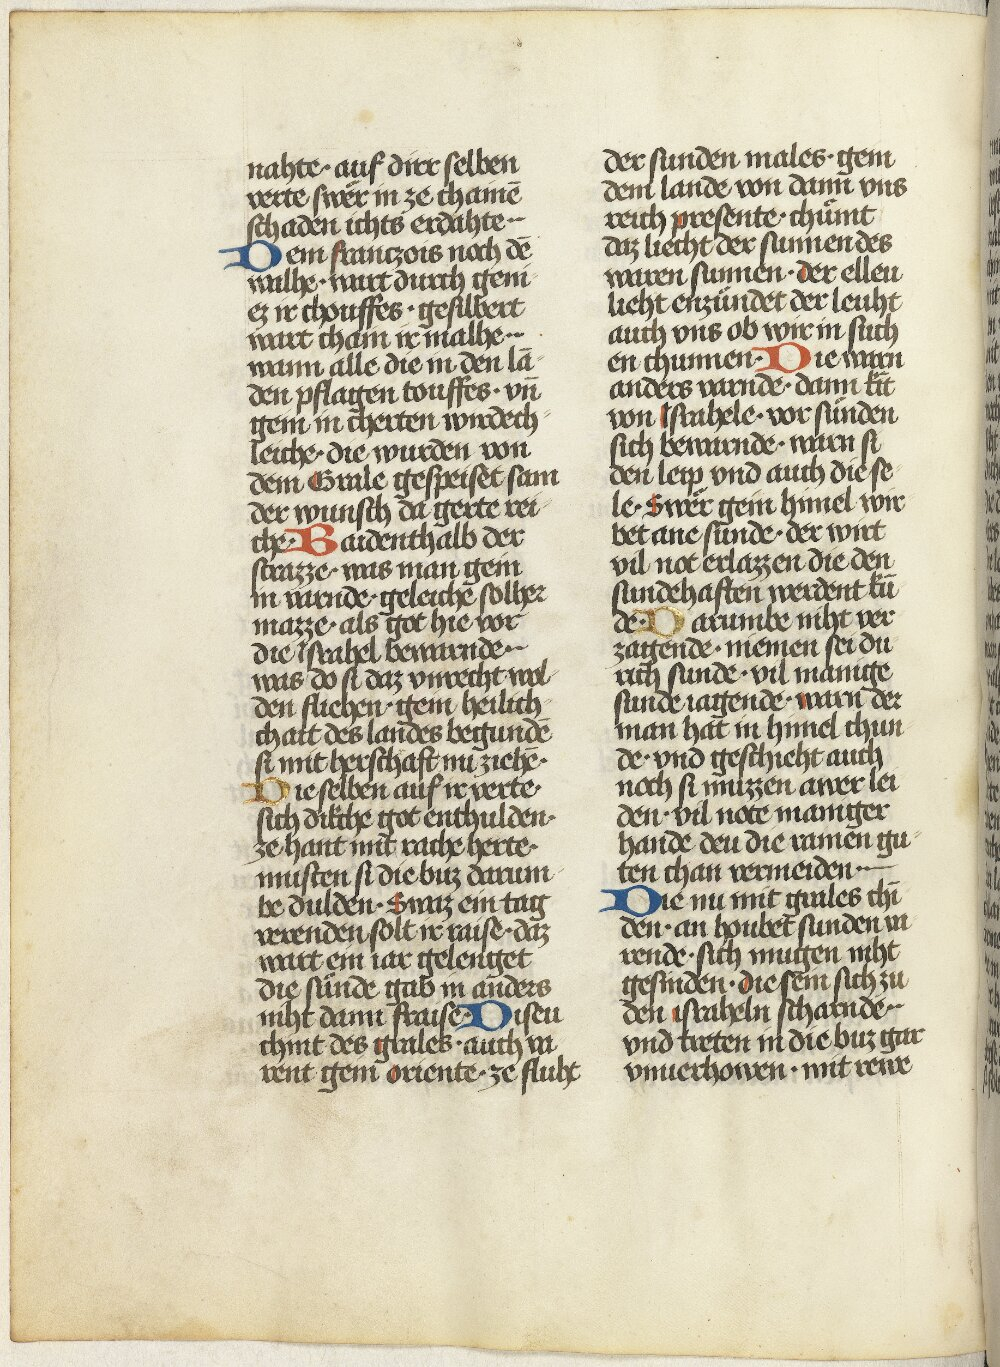 nahte· auf dirr selben
verte swer in ze chainē
schaden ichts erdahte·-
Dem franczois noch dē
walhe· wart durch gem
ez ir chouffes· gesilbert
wart chain ir malhe·-
wann alle die in den lā-
den pflagen touffes· vn̄
gein in cherten wirdech-
leiche· die wurden von
dem Grale gespeiset sam
der wunsch da gerte rei-
che· Baidenthalb der
strazze· was man gein
in varnde· geleichē solher
mazze· als got hie vor
die israhel bewarnde·-
was do si daz vnrecht wol-
den fliehen· gein heilich-
chait des landes begundē
si mit herschaft nu ziehē·
Die selben auf ir verte·
sich dikche got enthulden·
ze hant mit rache herte·
musten si die buz darum-
be dulden· Swaz ein tag
verenden solt ir raise· daz
wart ein iar gelenget
die sünde gab in anders
niht dann fraise· Diseu
chint des grales· auch va-
rent gein oriente· ze fluht
der sunden males· gein
dem lande von dann vns
reich presente· chümt
daz liecht der sunnen des
waren sunnen· der elleu
lieht enzündet der leuht
auch vns ob wir in such-
en chunnen· Die warn
anders varnde· dann kīt
von Israhele· vor sünden
sich bewarnde· warn si
den leip vnd auch die se-
le· Swer gein himel wir-
bet ane sünde· der wirt
vil not erlazzen die den
sundehaften werdent kū-
de· Darumbe niht ver-
zagende· niemen sei du-
rich sunde· vil manige
sunde iagende· warn der
man hat in himel chun-
de· vnd geschieht auch
noch si muzzen awer lei-
den· vil note maniger
hande deu die rainen gu-
ten chan vermeiden·-
Die nu mit grales chī-
den· an houbet sunden va-
rende· sich mugen niht
gesinden· die sein sich zu
den israheln scharnde·-
vnd treten in die buz gar
vnuerhowen· mit rewe